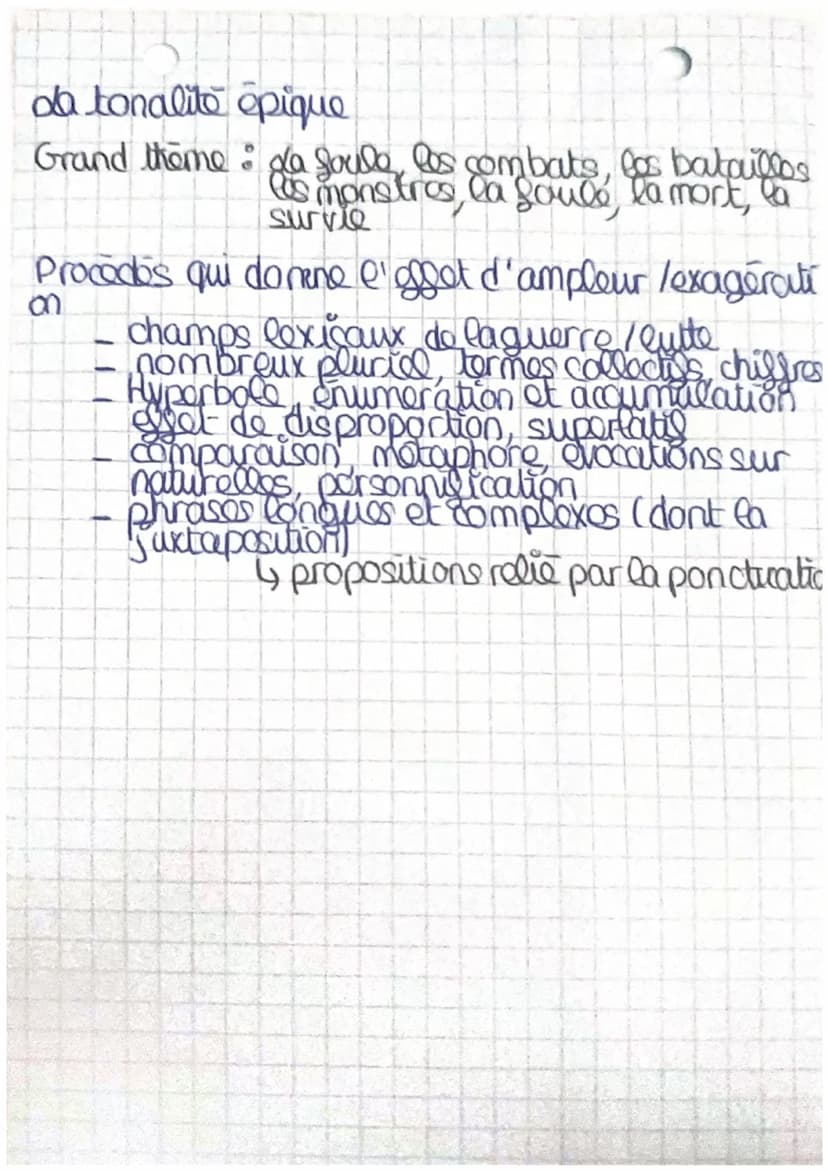 La tonalité épique
Grand thème : la foule, les combats, les batailles
les monstres, la foule, la mort, la
survie
Procédés qui donne l'effet d'ampleur /exagérati
on
- champs lexicaux de la guerre / lutte
- nombreux pluriel, termes collectifs, chiffres
- Hyperbole, énumération et accumulation
effet de disproportion, superlatif
- comparaison, métaphore, évocations sur
naturelles, personnification
- phrases longues et complexes (dont la
juxtaposition)
↳ propositions relié par la ponctuatio